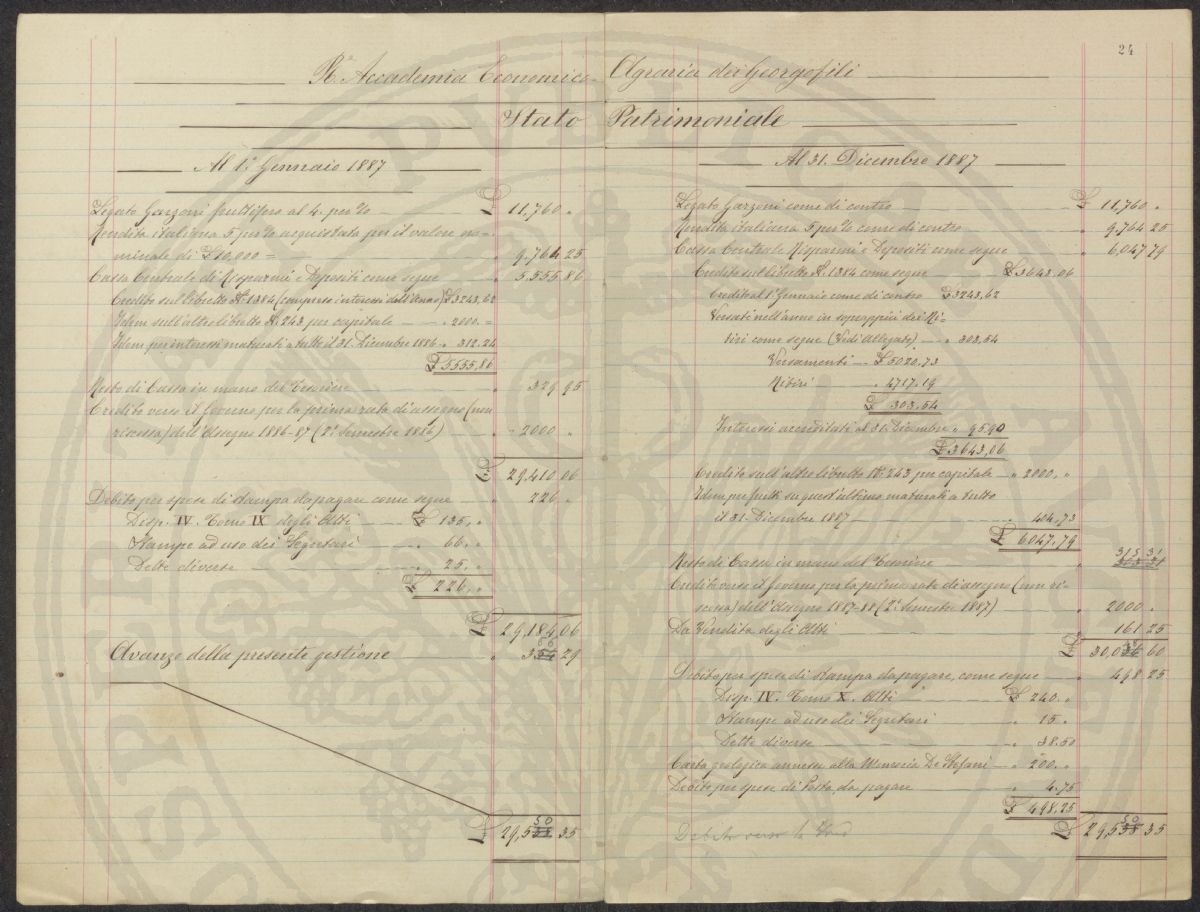 24
R.ª Accademia Economico-Agraria dei Georgofili
Stato Patrimoniale
Al 1º Gennaio 1887
Legato Garzoni fruttifero al 4. per % £ 11,760 "
Rendita italiana 5 per % acquistata per il valore no-
minale di £ 10,000 = " 9,764 25
Cassa Centrale di Risparmi e Depositi come segue " 5,555,86
Credito sul libretto Nº 1384 (compresi interessi dell'anno) £ 3243,62
Idem sull'altro libretto Nº 243 per capitale " 2000. =
Idem per interessi maturati a tutto il 31. Dicembre 1886 " 312,24
£ 5555,86
Resto di Cassa in mano del Tesoriere " 329 95
Credito verso il Governo per la prima rata di assegno (non
riscossa) dell'Assegno 1886-87 (2º Semestre 1886) " 2000 "
£ 29,410 06
Debito per spese di stampa da pagare come segue " 226 "
Disp. IV. Tomo IX degli Atti £ 135, "
Stampe ad uso dei Segretari " 66, "
Dette diverse " 25, "
£ 226, "
£ 29,184,06
Avanzo della presente gestione " 29
£ 29,550 35
Al 31. Dicembre 1887
Legato Garzoni come di contro £ 11,760 "
Rendita italiana 5 per % come di contro " 9,764 25
Cassa Centrale Risparmi e Depositi come segue " 6,047 79
Credito sul libretto Nº 1384 come segue £ 3643,06
Credito al 1º Gennaio come di contro £ 3243,62
Versati nell'anno in soprappiù dei Ri-
tiri come segue (Vedi Allegato) " 303,54
Versamenti £ 5020,73
Ritiri " 4717,19
£ 303,54
Interessi accreditati al 31. Dicembre " 95,90
£ 3643,06
Credito sull'altro libretto Nº 243 per capitale " 2000, "
Idem per frutti su quest'ultimo maturati a tutto
il 31. Dicembre 1887 " 404,73
£ 6047,79
Resto di Cassa in mano del Tesoriere " 315 31
Credito verso il Governo per la prima rata di assegno (non ri-
scossa) dell'Assegno 1887-88 (2º Semestre 1887) " 2000 "
Da Vendita degli Atti " 161 25
£ 60
Debito per spese di stampa da pagare, come segue " 498 25
Disp. IV. Tomo X. Atti £ 240. "
Stampe ad uso dei Segretari " 15. "
Dette diverse " 38.50
Carta geologica annessa alla Memoria De Stefani " 200. "
Debito per spese di Posta da pagare " 4.75
£ 498,25
Debito verso la
£ 29,550 35